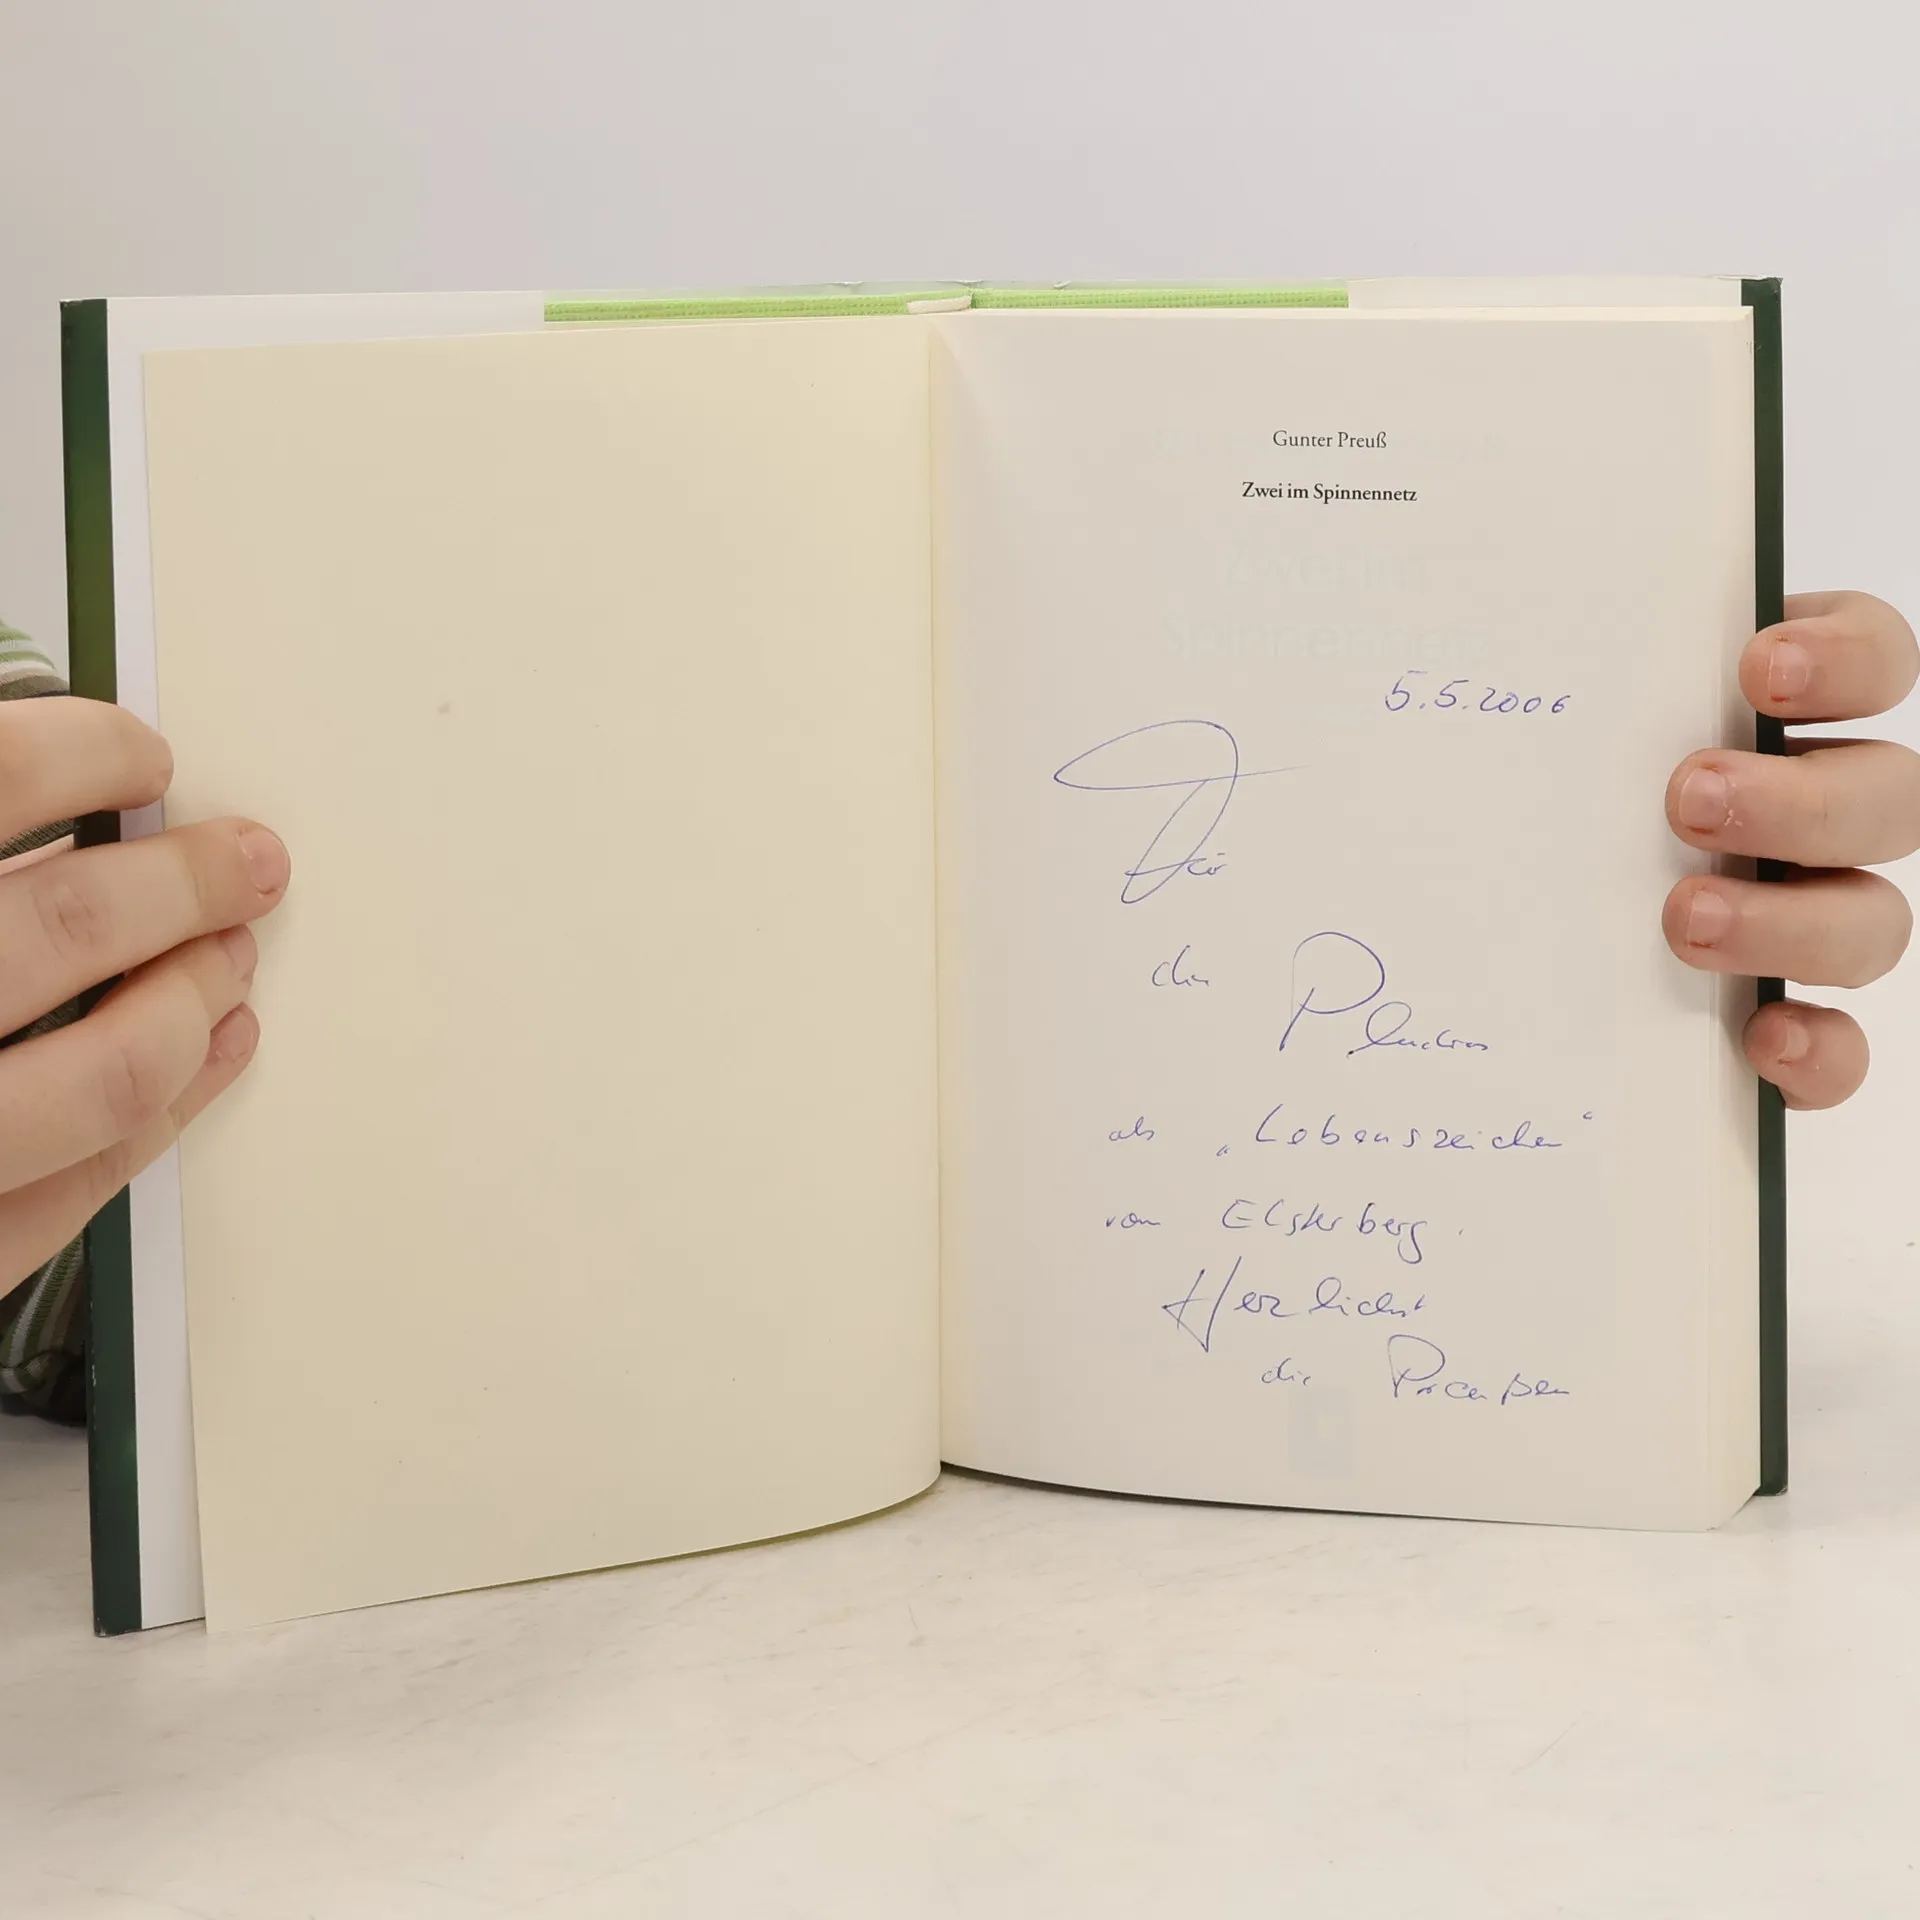 Gunter Preuß
Zwei im Spinnennetz
Zwei im
Spinnennetz
5.5.2006
Für
die
als „Lebenszeichen“
vom Elsterberg.
Herzlichst
die Preußen